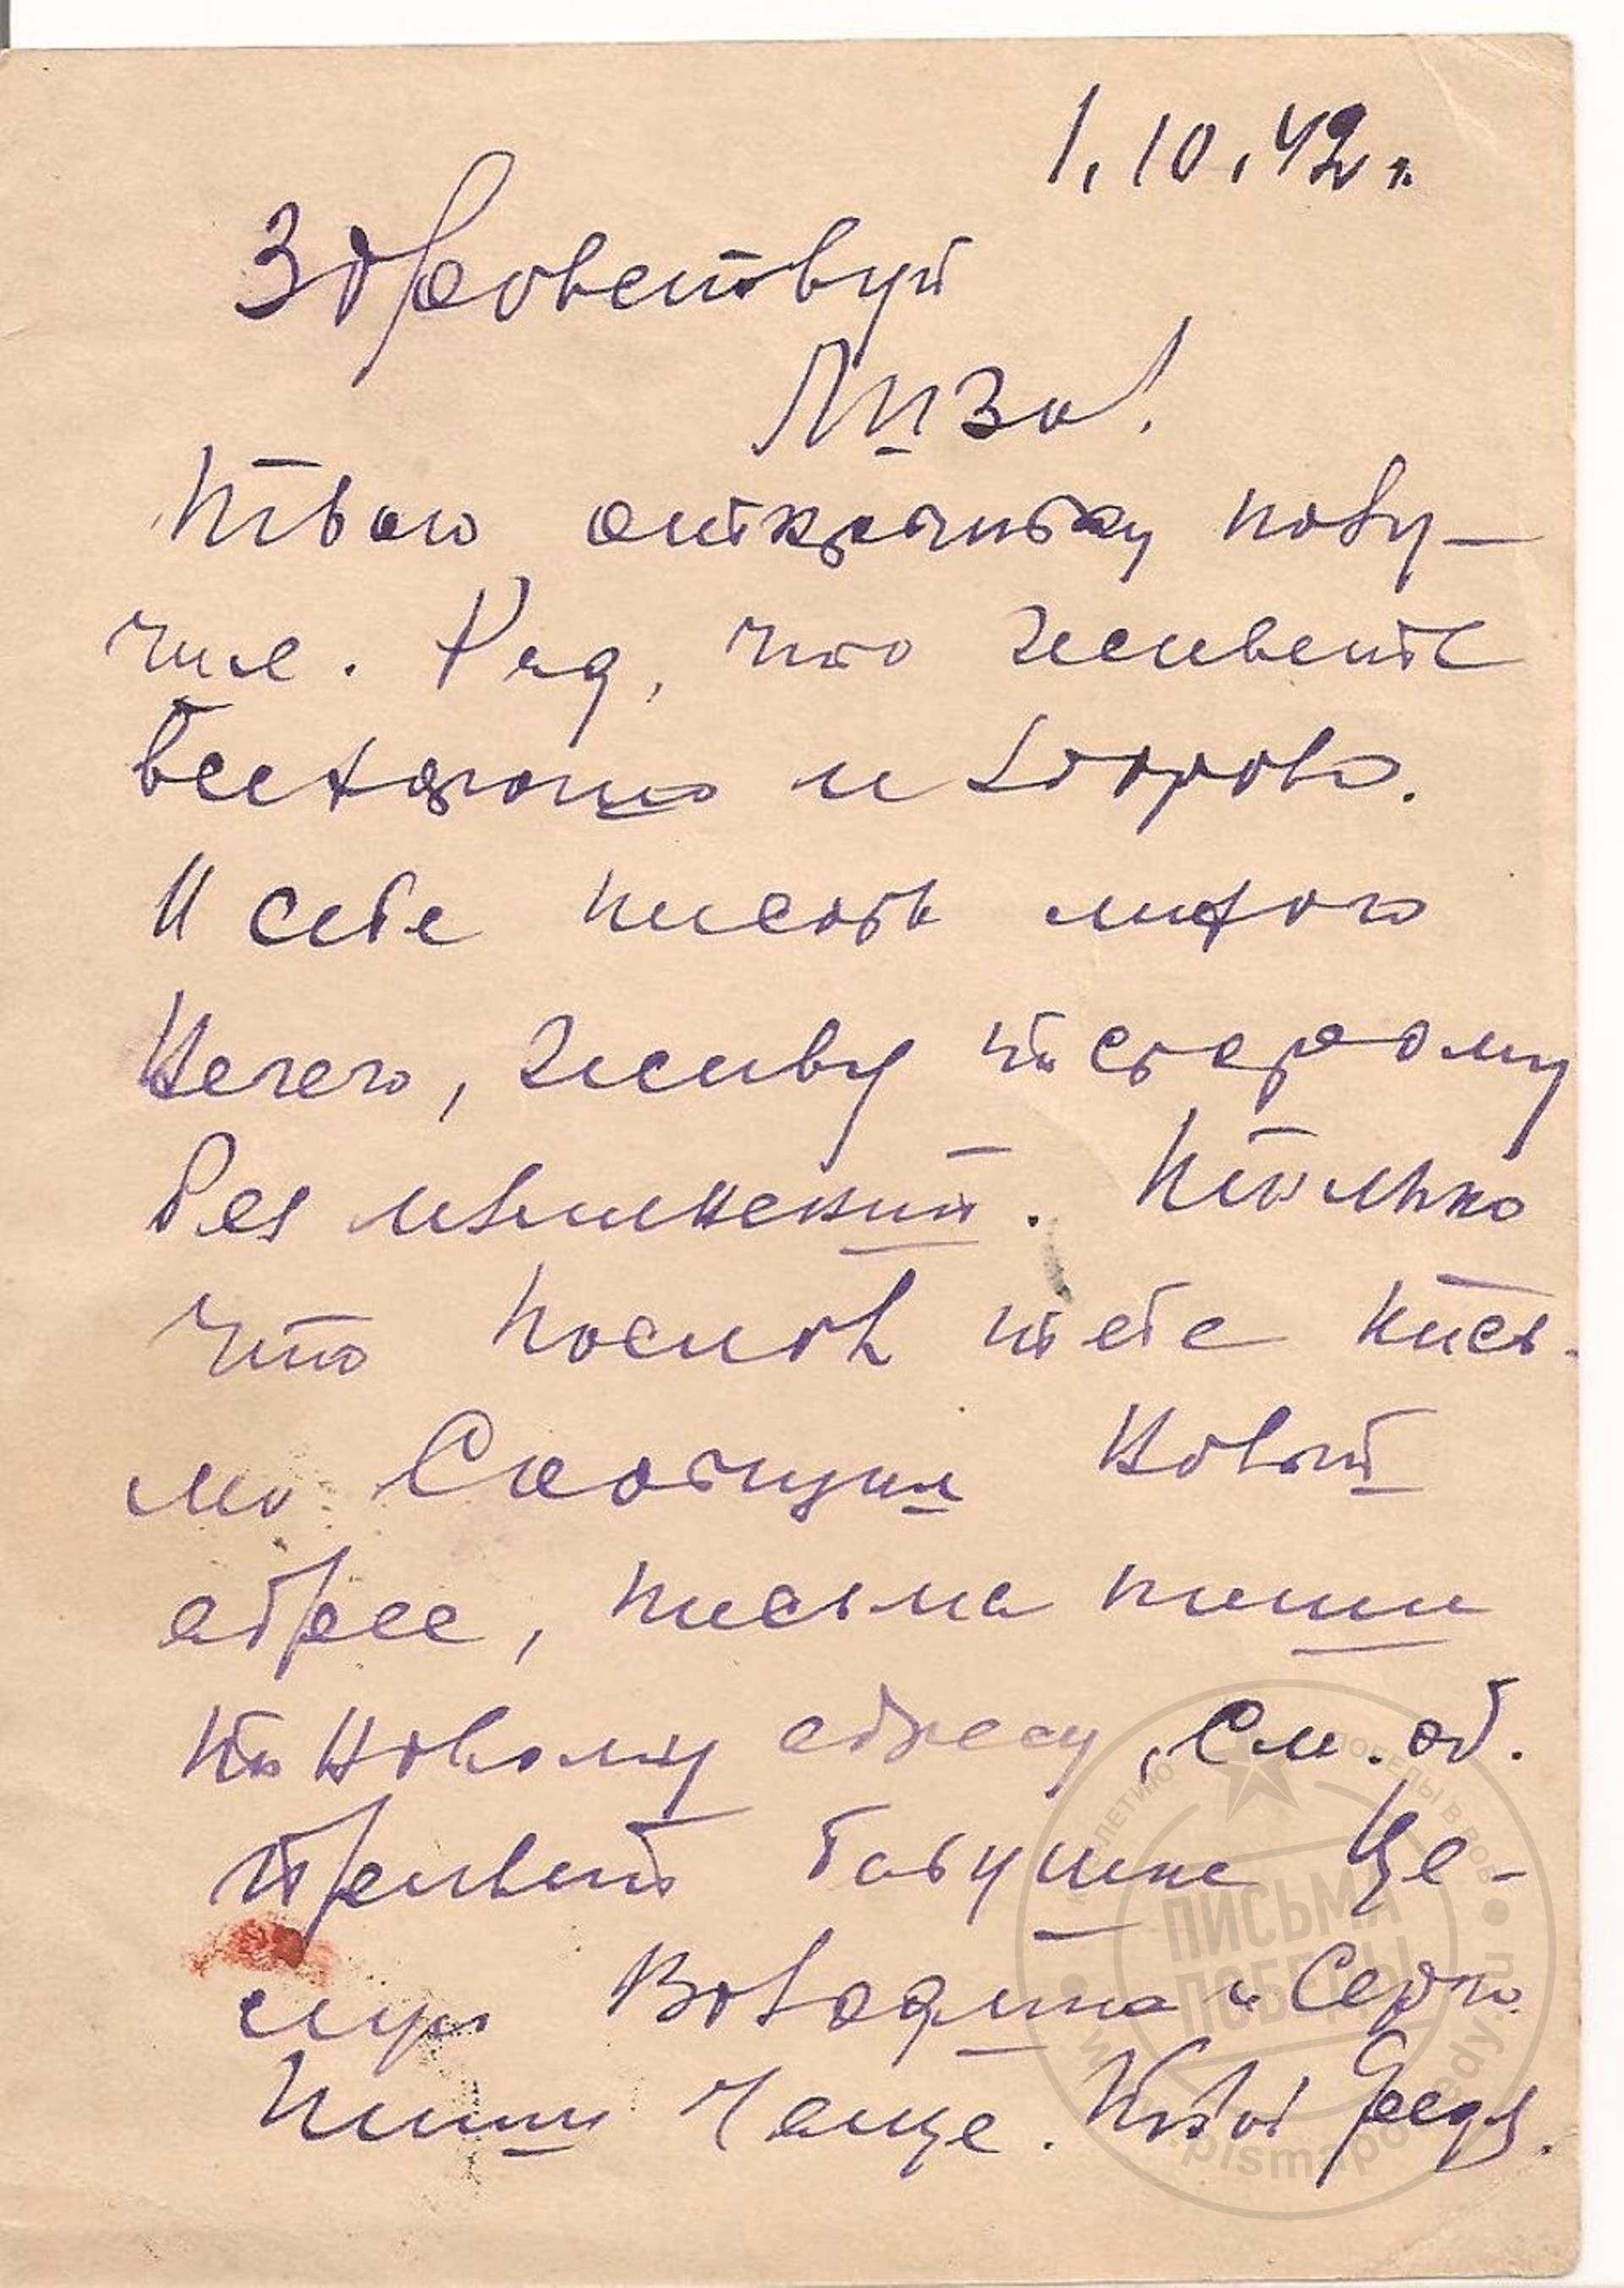 1.10.42 г.
Здравствуй
Лиза!
Твою открытку полу-
чил. Рад, что живете
и здорово.
О себе писать много
нечего, живу по старому
без изменений. Только
что послал тебе пись-
мо Сообщил новый
адрес, письма пиши
по новому адресу, см. об.
Привет бабушке Це-
лую Володьку и Сережу
Пиши чаще. Твой Федя.
ПИСЬМА
ПОБЕДЫ